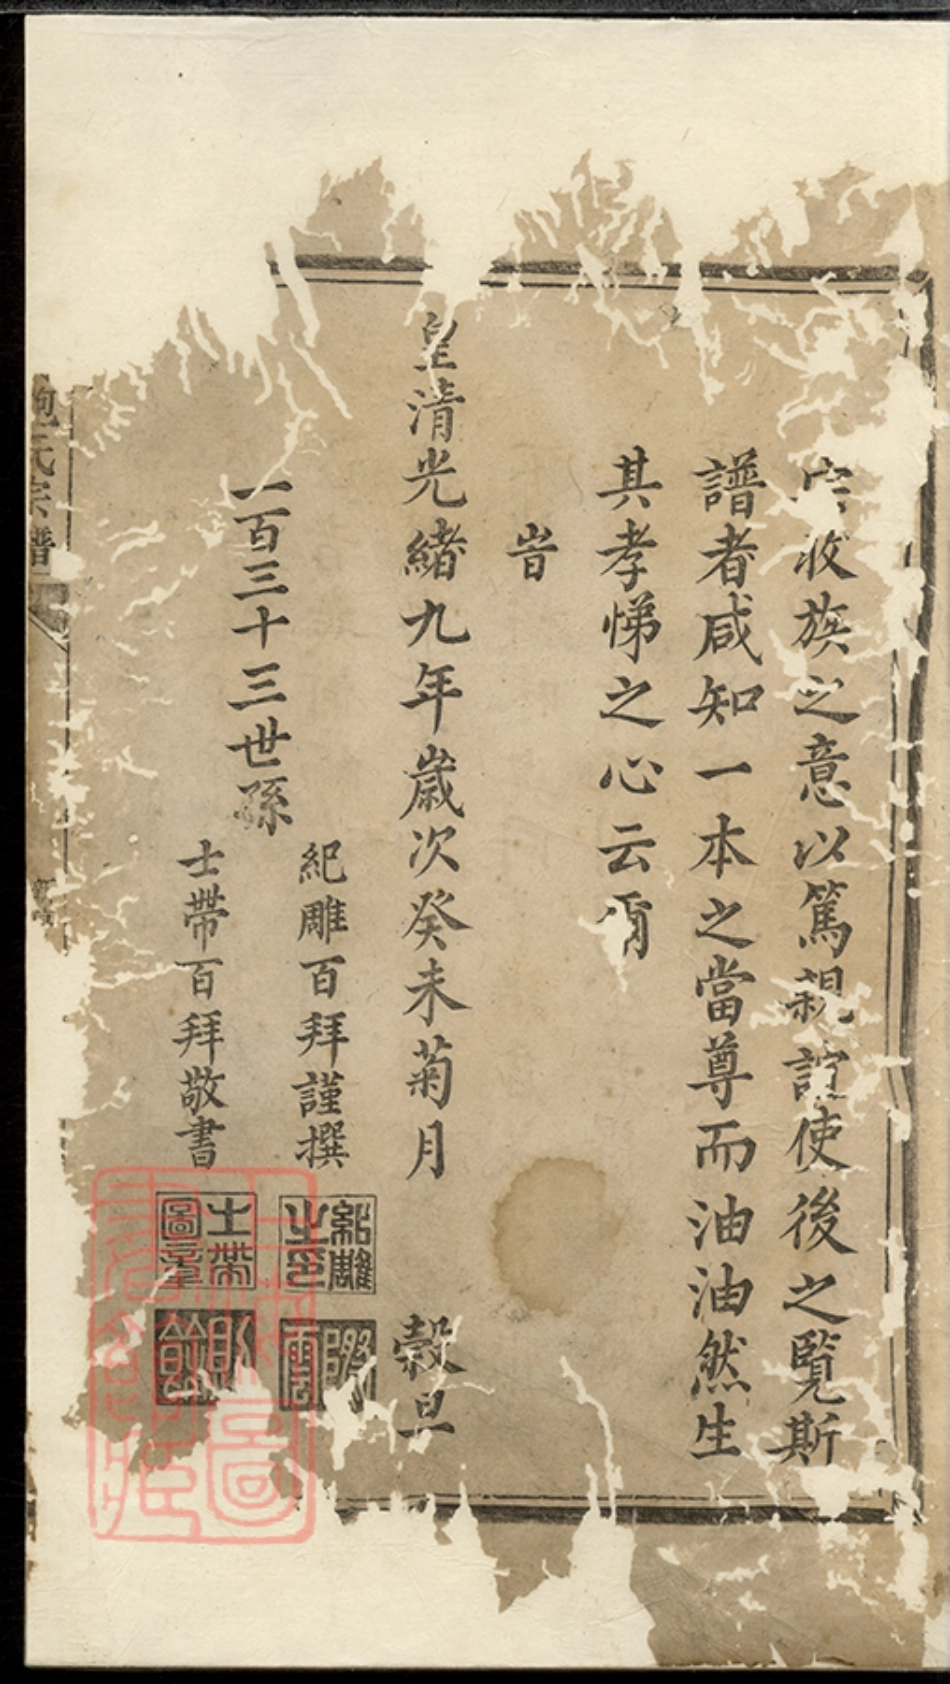 收族之意以篤親誼使後之覽斯
譜者咸知一本之當尊而油油然生
其孝悌之心云爾
旹
皇清光緒九年歲次癸未菊月 穀旦
一百三十三世孫
紀雕百拜謹撰
士帶百拜敬書
士帶圖章
鮑氏宗譜